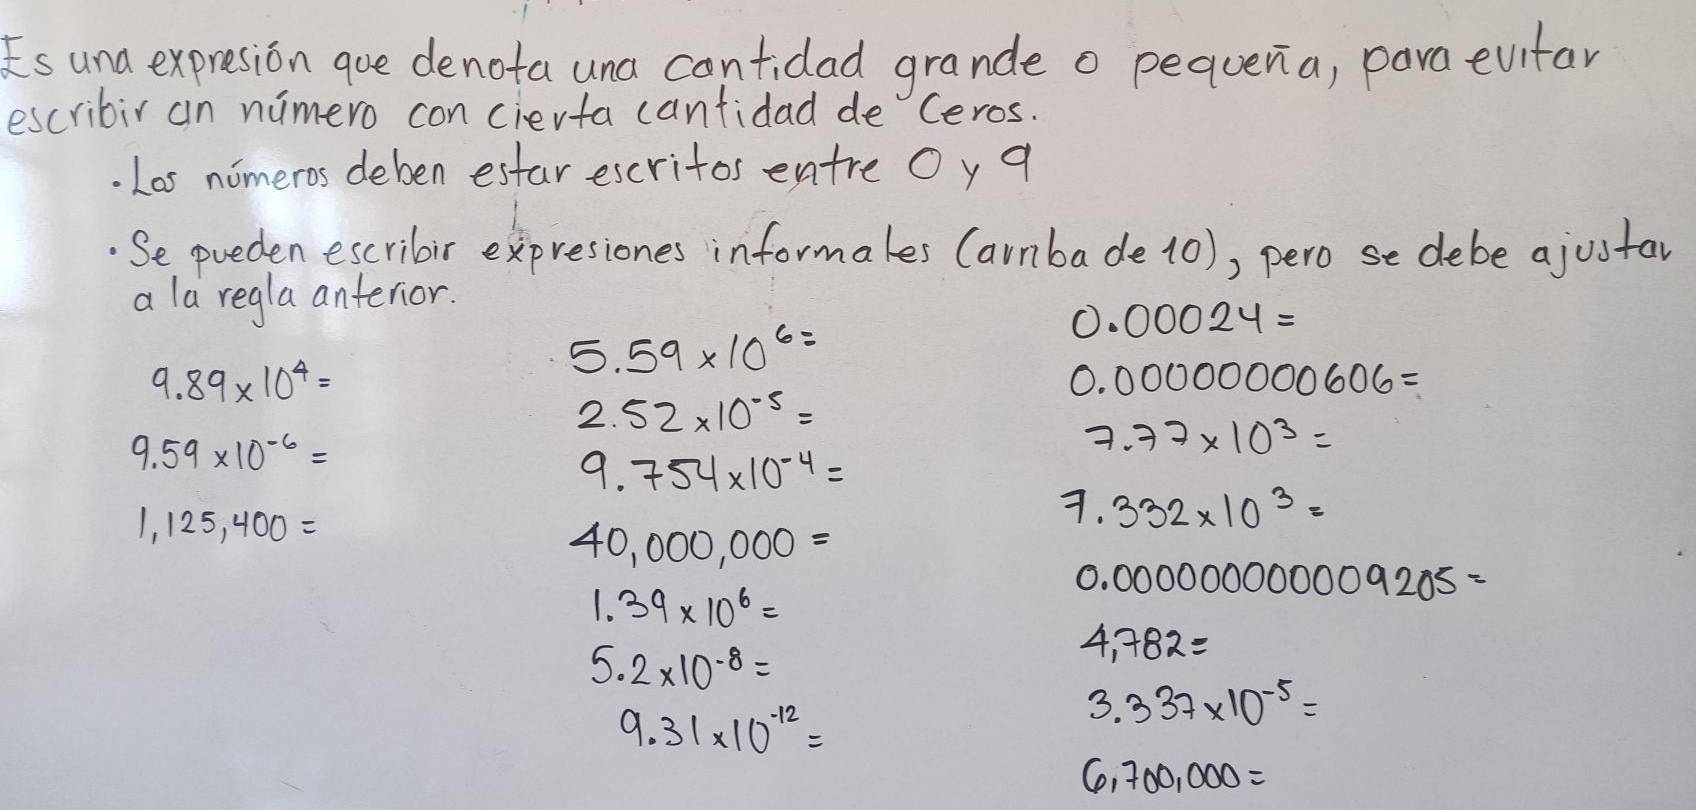 Es una expresión que denota una cantidad grande o pequeña, para evitar
escribir un número con cierta cantidad de ceros.
· Los números deben estar escritos entre 0 y 9
· Se pueden escribir expresiones informales (arriba de 10), pero se debe ajustar
a la regla anterior.
9.89 x 10⁴ =
9.59 x 10⁻⁶ =
1,125,400 =
5.59 x 10⁶ =
2.52 x 10⁻⁵ =
9.754 x 10⁻⁴ =
40,000,000 =
1.39 x 10⁶ =
5.2 x 10⁻⁸ =
9.31 x 10⁻¹² =
0.00024 =
0.00000000606 =
7.77 x 10³ =
7.332 x 10³ =
0.000000000009205 =
4,782 =
3.337 x 10⁻⁵ =
6,700,000 =